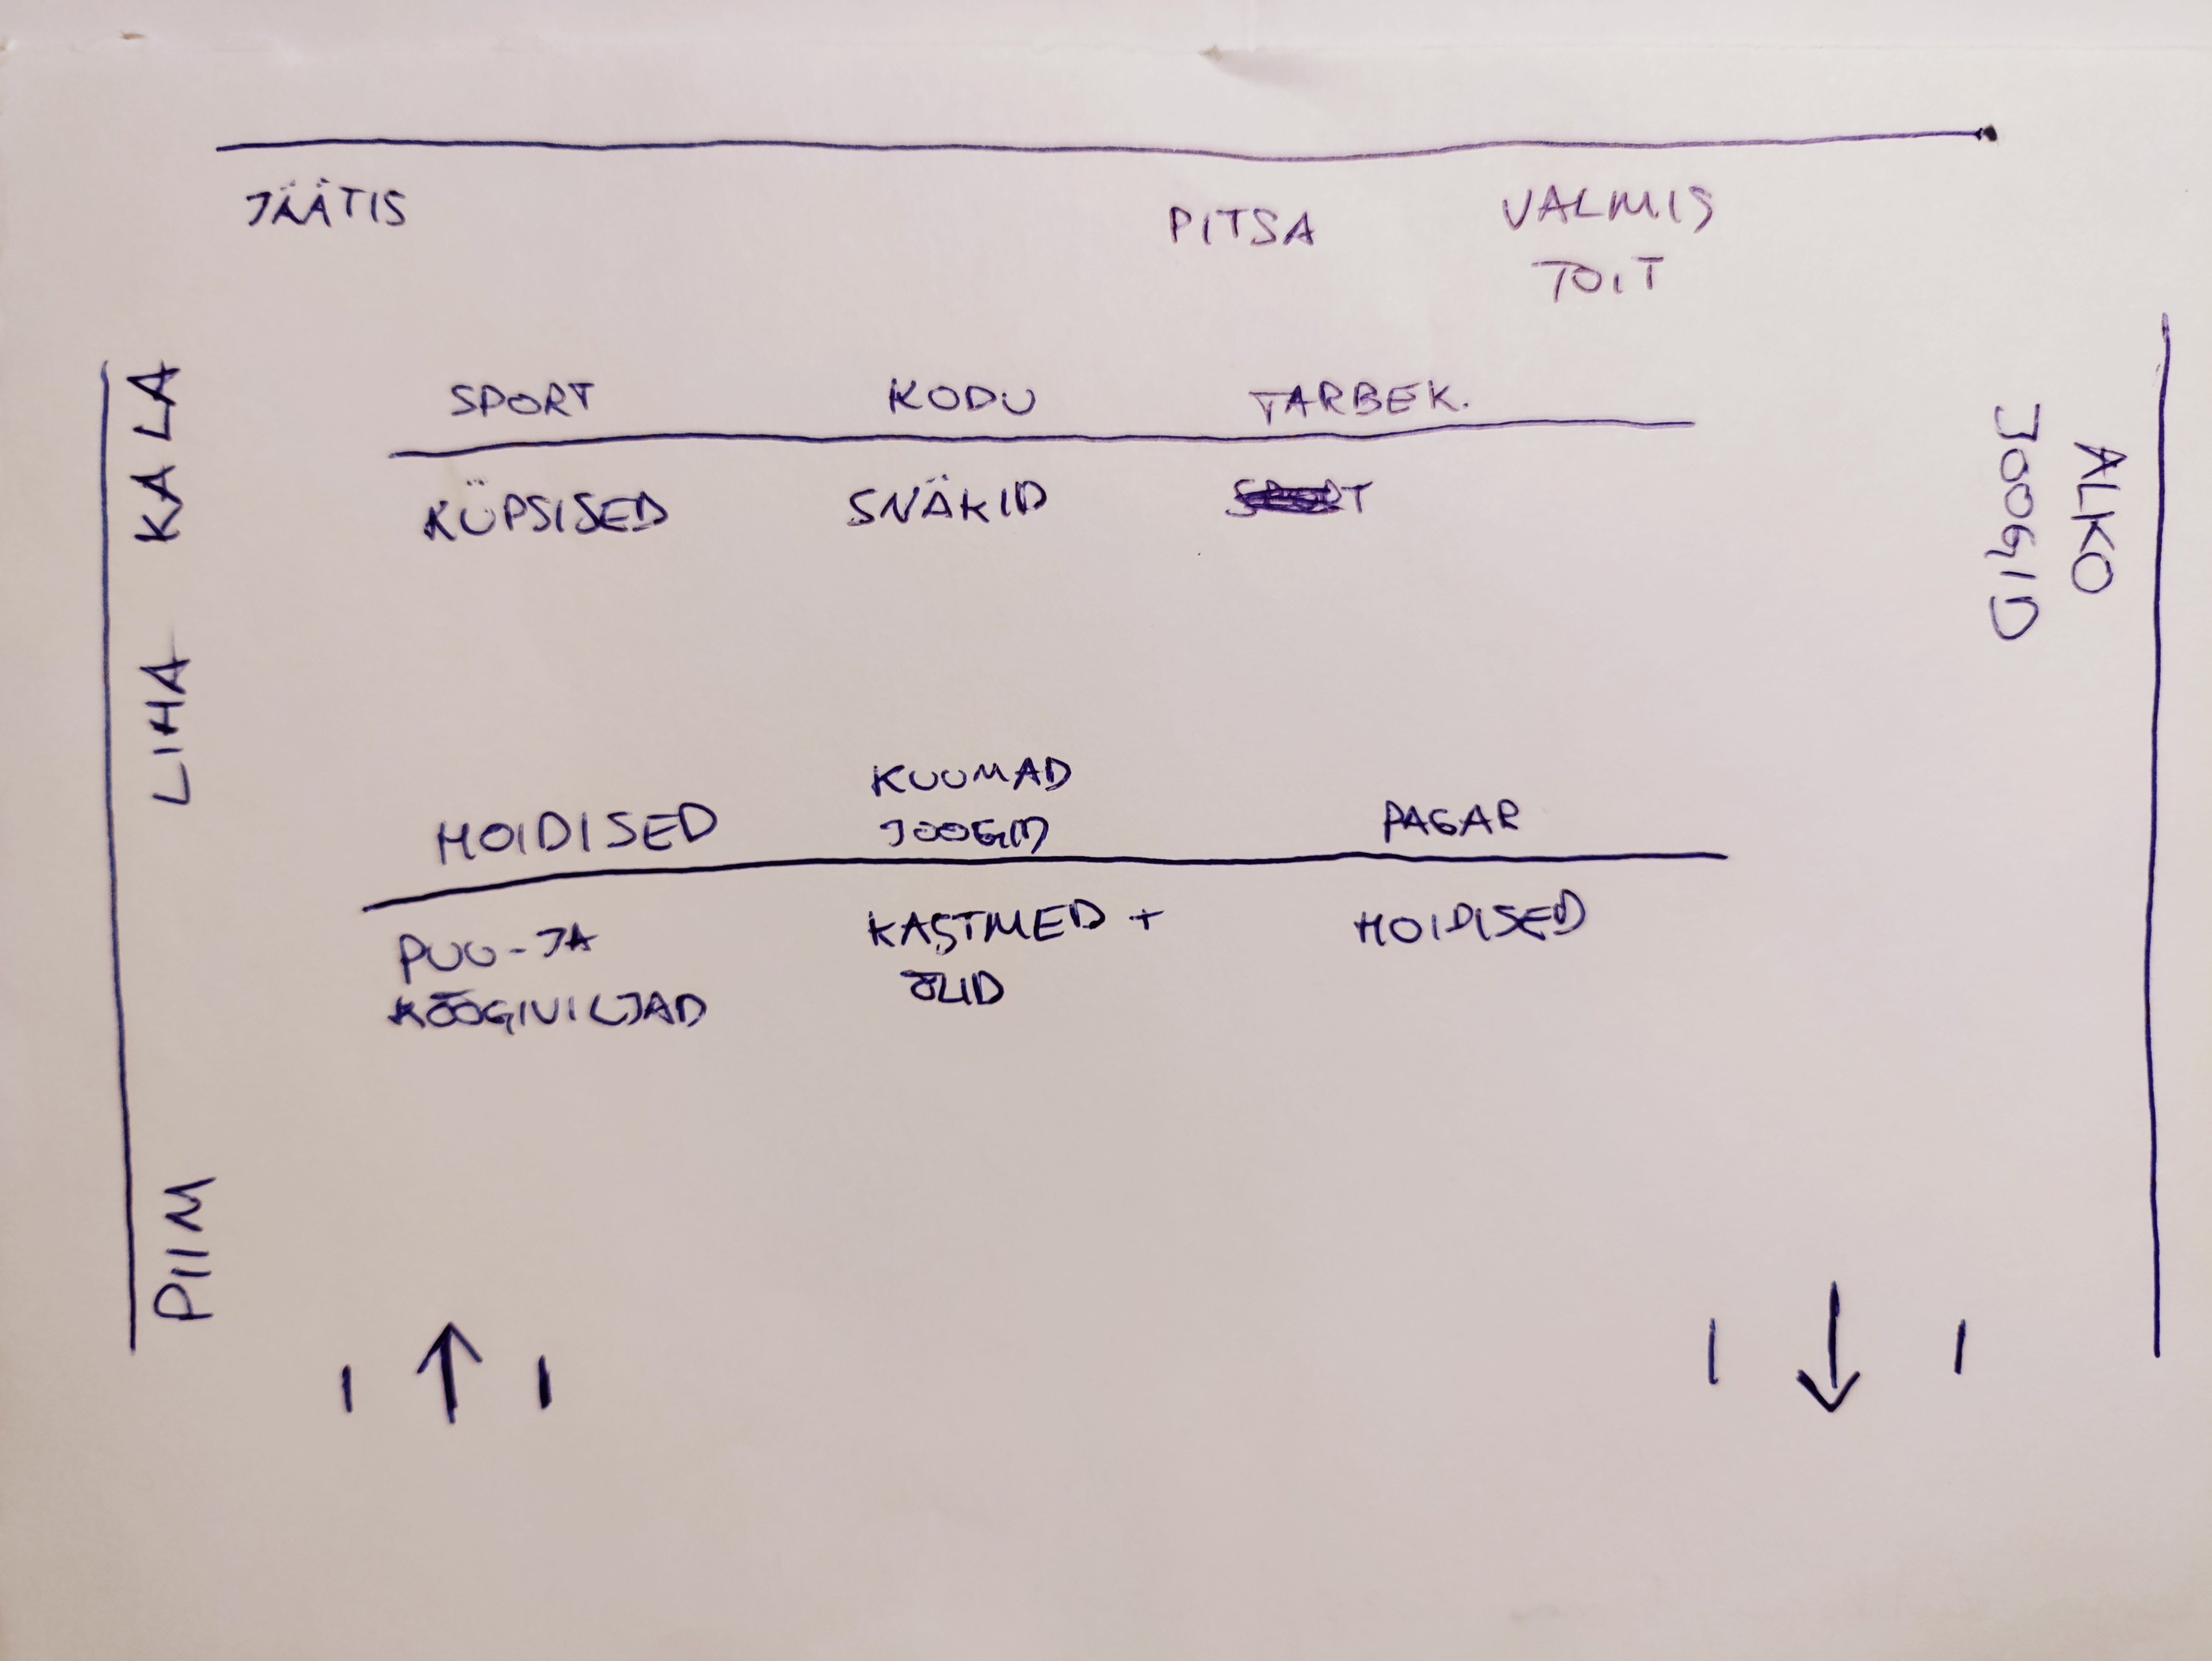 JÄÄTIS
PITSA
VALMIS
TOIT
KALA
LIHA
PIIM
SPORT
KODU
TARBEK.
KÜPSISED
SNÄKID
ALKO
JOOGID
HOIDISED
KUUMAD
JOOGID
PAGAR
PUU-JA
KÖÖGIVILJAD
KASTMED +
ÕLID
HOIDISED